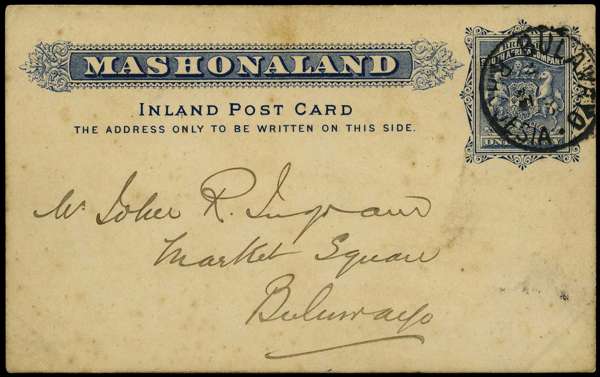 MASHONALAND
INLAND POST CARD
THE ADDRESS ONLY TO BE WRITTEN ON THIS SIDE.
SOUTH AFRICA COMPANY
BULAWAYO
Mr. John R. Ingram
Market Square
Buluwayo